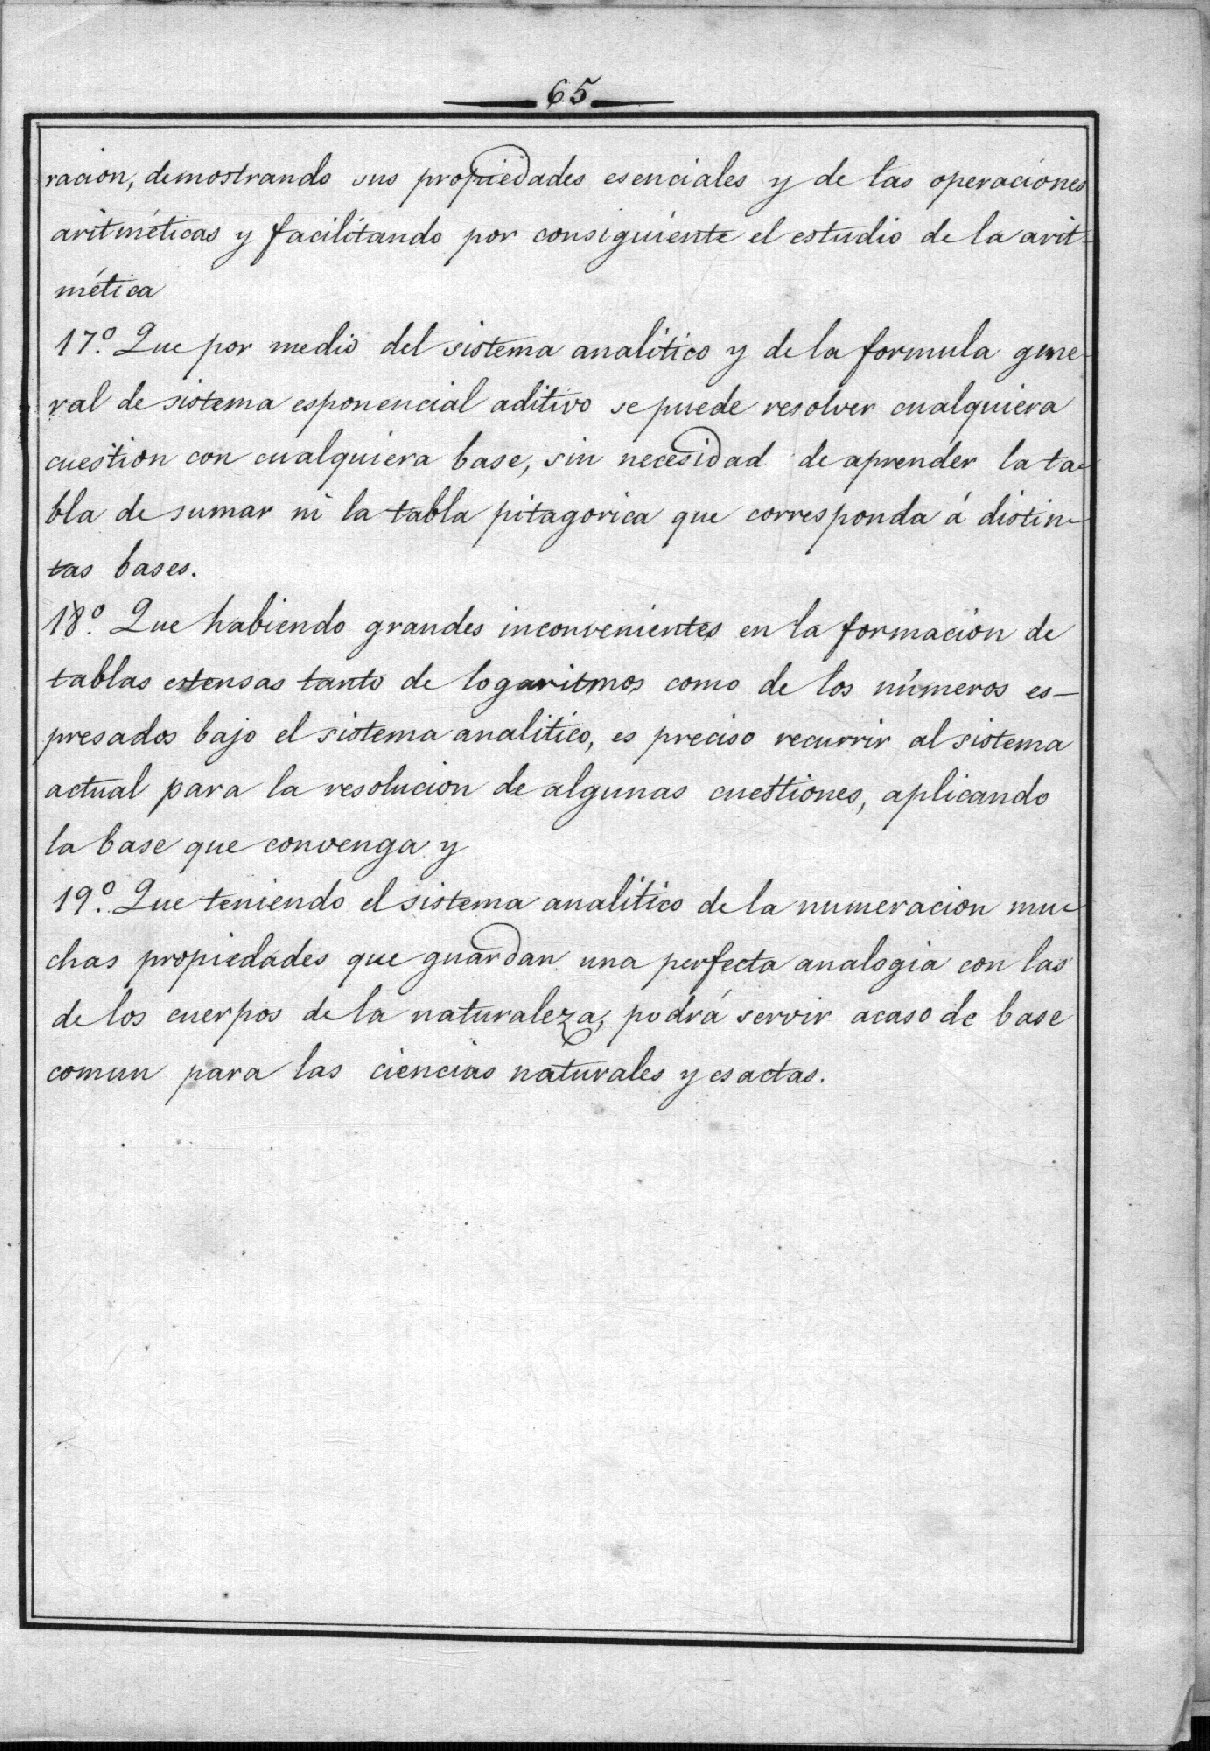 65
racion, demostrando sus propiedades esenciales y de las operaciones
aritméticas y facilitando por consiguiente el estudio de la arit-
mética
17.º Que por medio del sistema analitico y de la formula gene-
ral de sistema esponencial aditivo se puede resolver cualquiera
cuestion con cualquiera base, sin necesidad de aprender la ta-
bla de sumar ni la tabla pitagorica que corresponda á distin-
tas bases.
18.º Que habiendo grandes inconvenientes en la formacion de
tablas estensas tanto de logaritmos como de los números es-
presados bajo el sistema analitico, es preciso recurrir al sistema
actual para la resolucion de algunas cuestiones, aplicando
la base que convenga y
19.º Que teniendo el sistema analitico de la numeracion mu-
chas propiedades que guardan una perfecta analogia con las
de los cuerpos de la naturaleza, podrá servir acaso de base
comun para las ciencias naturales y esactas.